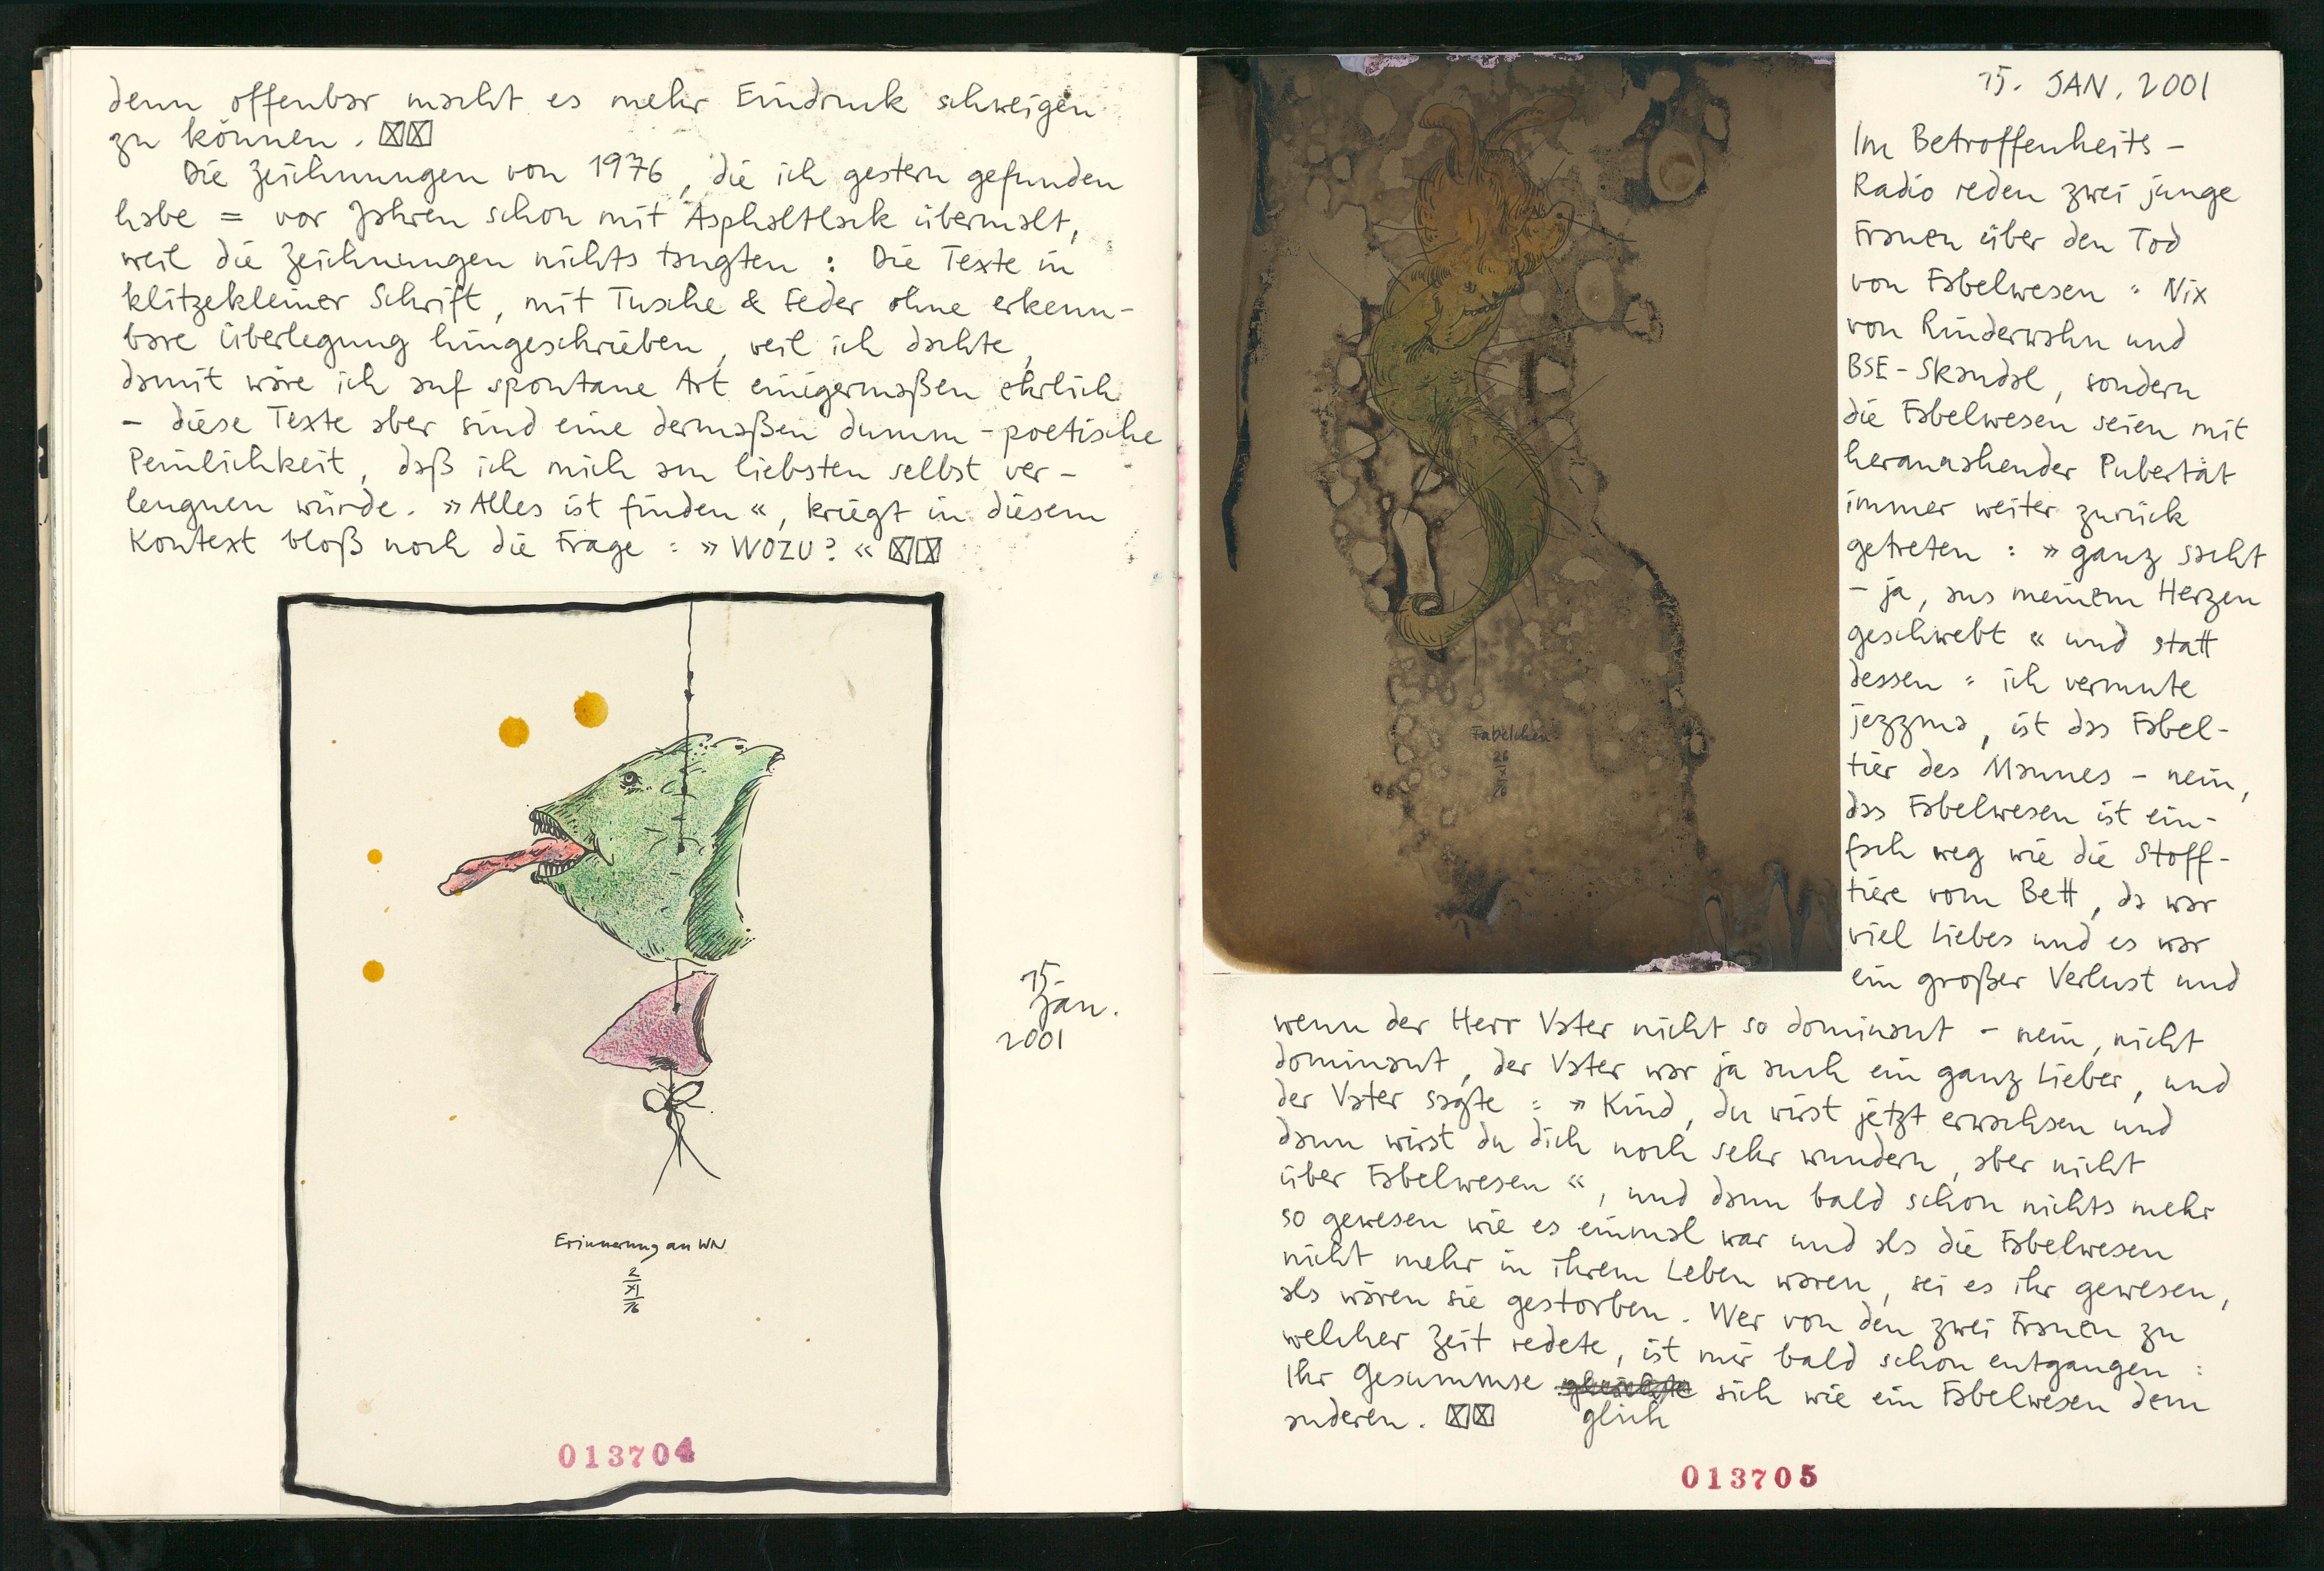 denn offenbar macht es mehr Eindruck schweigen
zu können. ☒☒
Die Zeichnungen von 1976, die ich gestern gefunden
habe = vor Jahren schon mit Asphaltlack übermalt,
weil die Zeichnungen nichts taugten : Die Texte in
klitzekleiner Schrift, mit Tusche & Feder ohne erkenn-
bare Überlegung hingeschrieben, weil ich dachte,
damit wäre ich auf spontane Art einigermaßen ehrlich
– diese Texte aber sind eine dermaßen dumm-poetische
Peinlichkeit, daß ich mich am liebsten selbst ver-
leugnen würde. »Alles ist finden«, kriegt in diesem
Kontext bloß noch die Frage : »WOZU?« ☒☒
15.
Jan.
2001
Erinnerung an WN
2
XI
76
013704
15. JAN. 2001
Im Betroffenheits-
Radio reden zwei junge
Frauen über den Tod
von Fabelwesen = Nix
von Rinderwahn und
BSE-Skandal, sondern
die Fabelwesen seien mit
herannahender Pubertät
immer weiter zurück
getreten : »ganz sacht
– ja, aus meinem Herzen
geschwebt« und statt
dessen = ich vermute
jezzma, ist das Fabel-
tier des Mannes – nein,
das Fabelwesen ist ein-
fach weg wie die Stoff-
tiere vom Bett, da war
viel Liebes und es war
ein großer Verlust und
wenn der Herr Vater nicht so dominant – nein, nicht
dominant, der Vater war ja auch ein ganz Lieber, und
der Vater sagte : »Kind, du wirst jetzt erwachsen und
dann wirst du dich noch sehr wundern, aber nicht
über Fabelwesen«, und dann bald schon nichts mehr
so gewesen wie es einmal war und als die Fabelwesen
nicht mehr in ihrem Leben waren, sei es ihr gewesen,
als wären sie gestorben. Wer von den zwei Frauen zu
welcher Zeit redete, ist mir bald schon entgangen :
Ihr Gesummse sich wie ein Fabelwesen dem
anderen. ☒☒ glich
Fabelchen
26
XI
76
013705